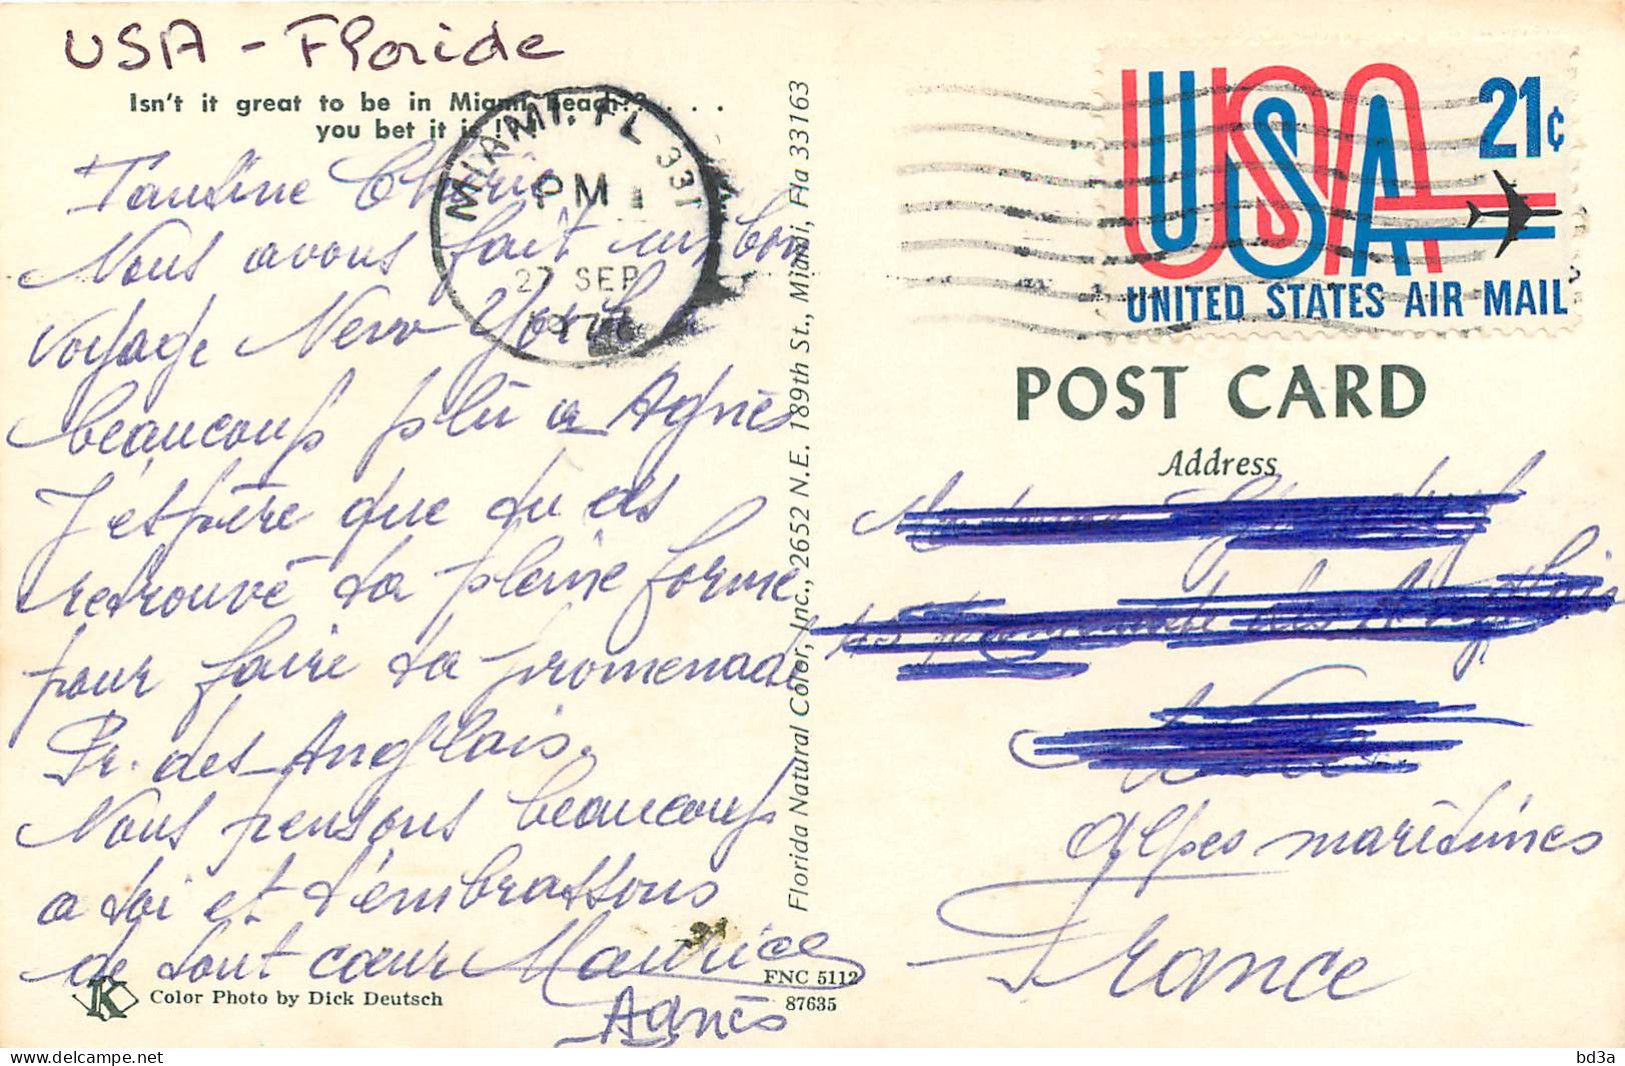 USA - Floride
Isn't it great to be in Miami Beach?? . . . .
you bet it is!!
Chérie
Nous avons fait un bon
voyage New York a
beaucoup plû a Agnès
J'espère que tu as
retrouvé ta pleine forme
pour faire ta promenade
Pr. des Anglais.
Nous pensons beaucoup
a toi et t'embrassons
de tout cœur Maurice
Agnès
Color Photo by Dick Deutsch
K
FNC 5112
87635
MIAMI. FL 331
PM
27 SEP
Florida Natural Color, Inc., 2652 N.E. 189th St., Miami, Fla 33163
USA
21¢
UNITED STATES AIR MAIL
POST CARD
Address
Alpes maritimes
France
bd3a